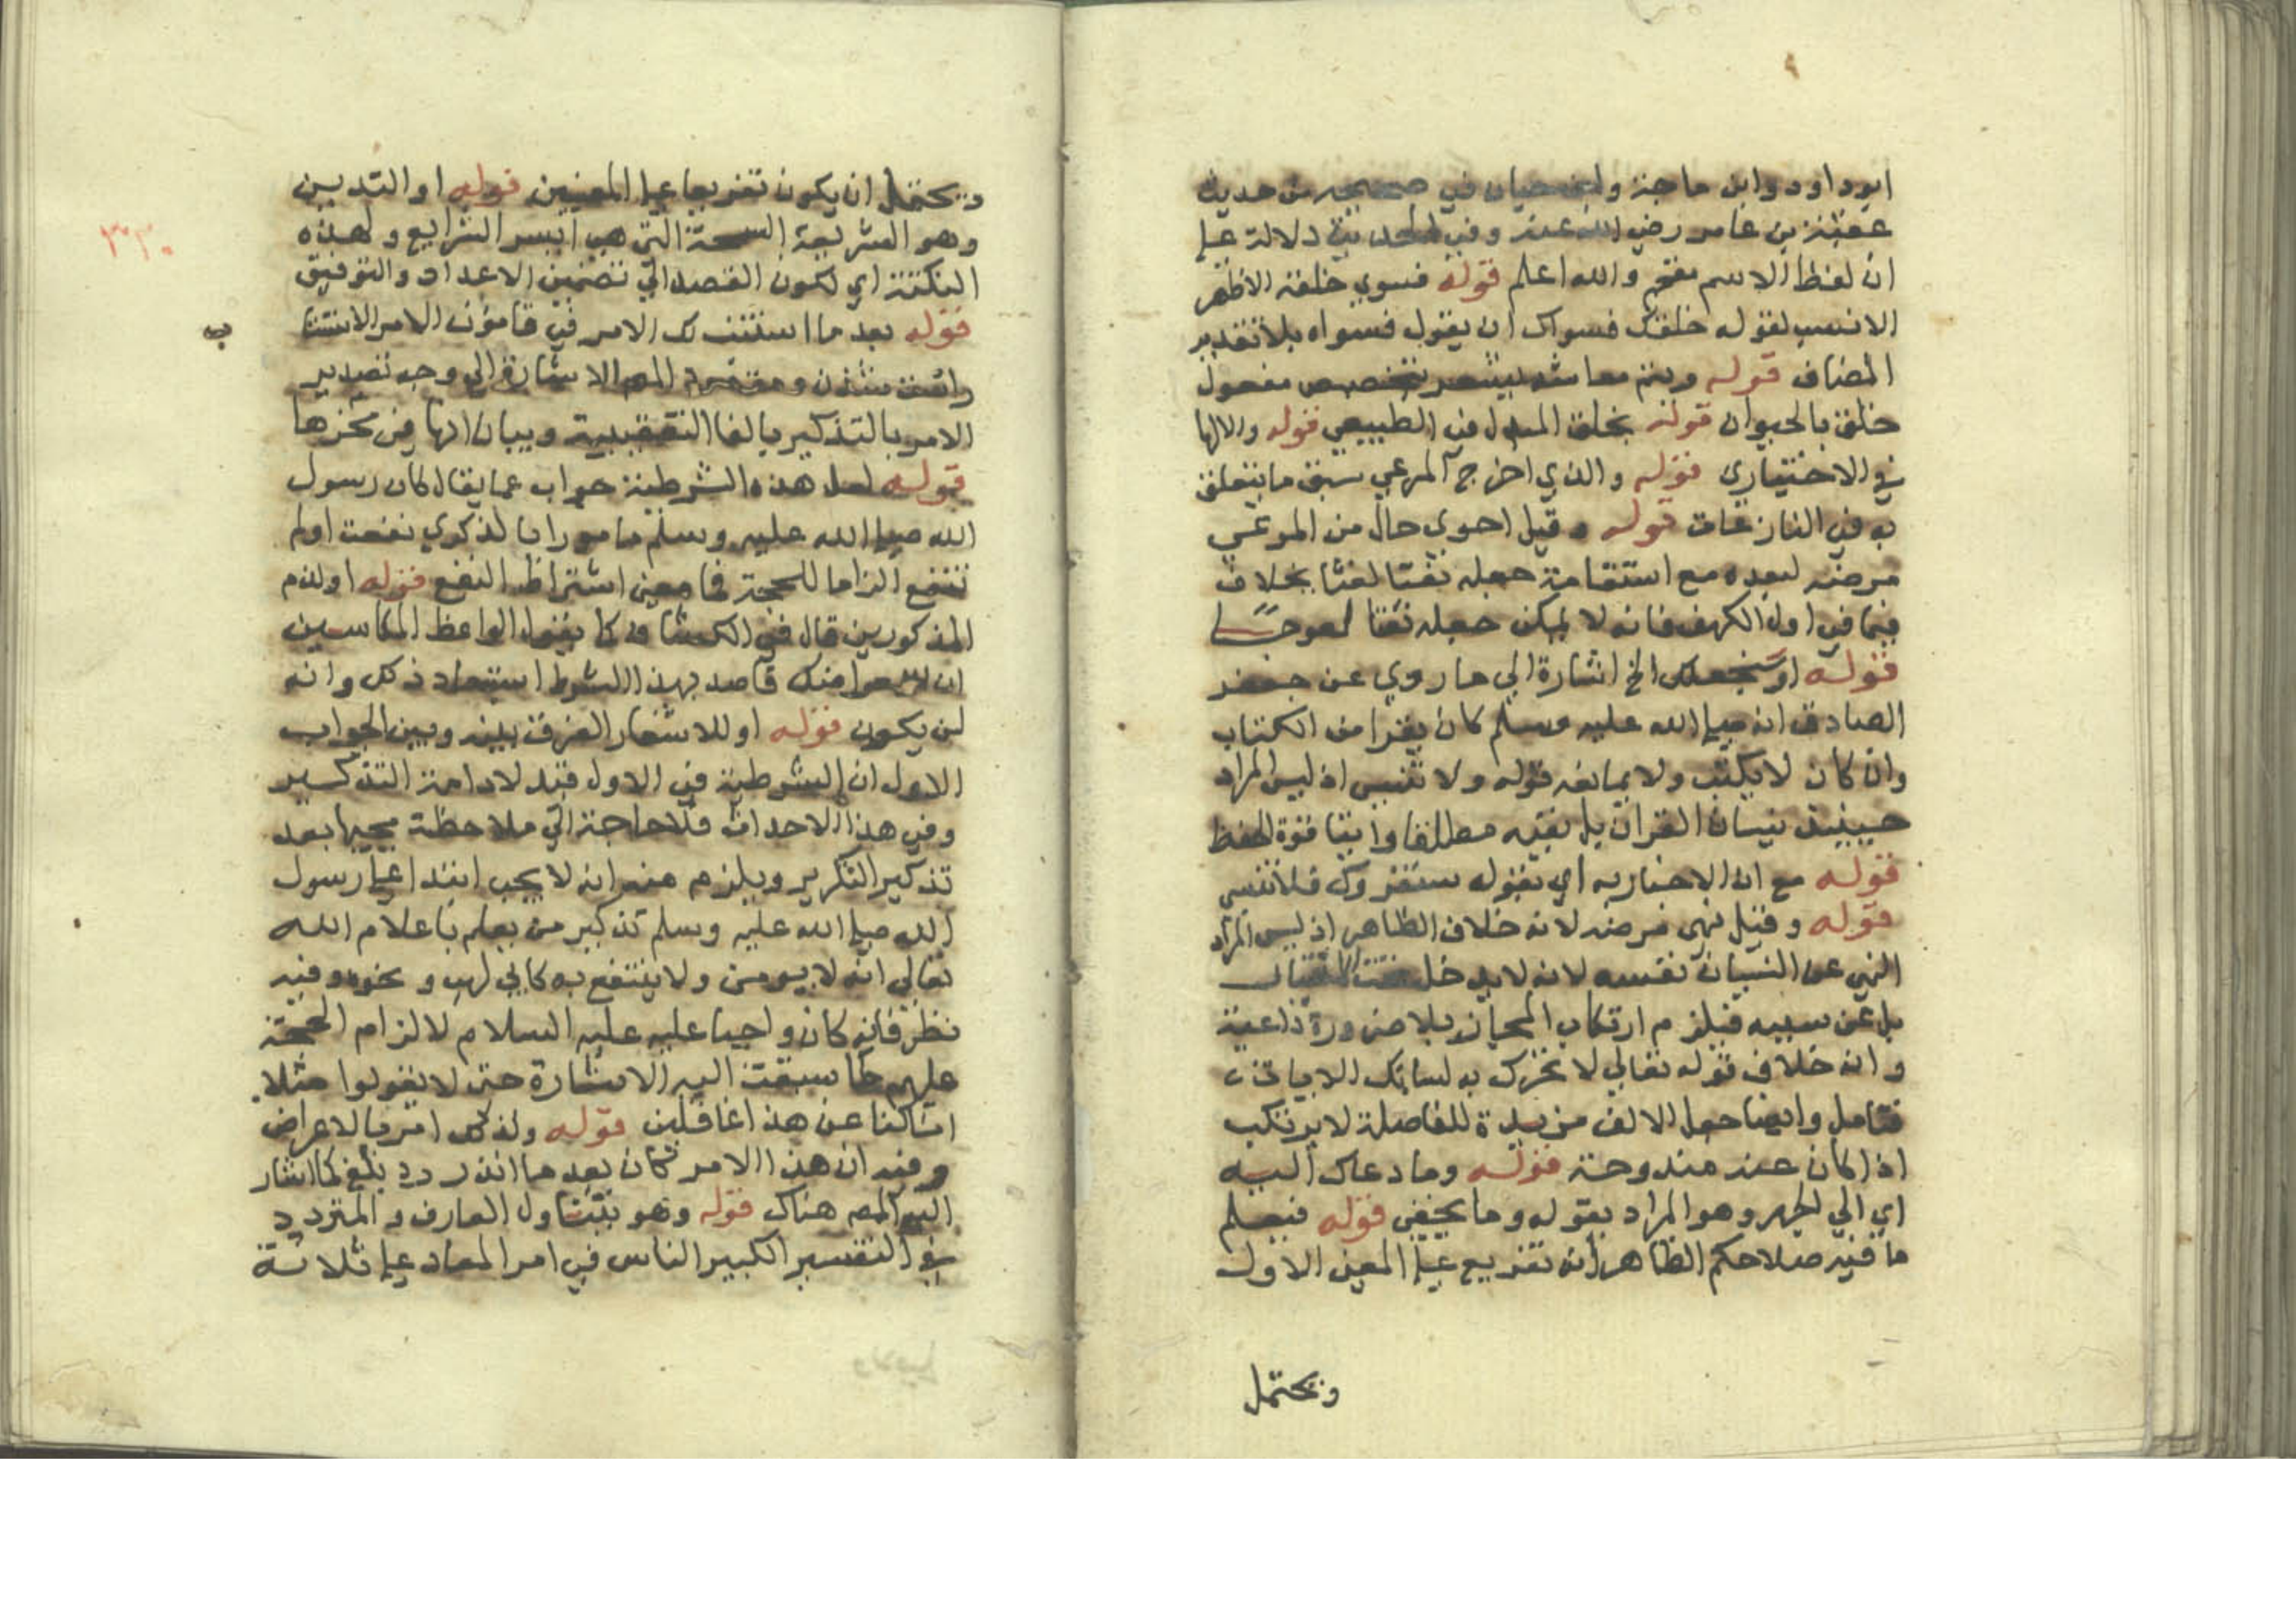 ابو داود وابن ماجة وابن حبان في صحيحه من حديث
عقبة بن عامر رضي الله عنه وفي الحديث دلالة علي
ان لفظ الاسم مقحم والله اعلم قوله فسوي خلقه الاظهر
الانسب لقوله خلقك فسواك ان يقول فسواه بلا تقدير
المضاف قوله ويتم معاشه يشعر بتخصيص مفعول
خلق بالحيوان قوله بخلق الميل في الطبيعي قوله والالها
في الاختياري قوله والذي اخرج المرعي سبق ما يتعلق
به في النازعات قوله وقيل احوي حال من المرعي
مرضه لبعده مع استقامة جعله نعتا لغثا بخلاف
فيما في اول الكهف فانه لا يمكن جعله نعتا لعوجا
قوله او سنجعلك الخ اشارة الي ما روي عن جعفر
الصادق انه صلي الله عليه وسلم كان يقرا من الكتاب
وان كان لا يكتب ولا يمانعه قوله ولا تنسي اذ ليس المراد
حينيذ نيسان القران بل نفيه مطلقا وابتا قوة الحفظ
قوله مع ان الاخبار به اي بقوله سنقروك فلا تنسي
قوله وقيل نهي مرضه لانه خلاف الظاهر اذ ليس المراد
النهي عن النسيان نفسه لانه لا يدخل تحت الاختيار
بل عن سببه فيلزم ارتكاب المجاز بلا ضرورة داعية
وانه خلاف قوله تعالي لا تحرك به لسانك الايات
فتامل وايضا جعل الالف مزيدة للفاصلة لا يرتكب
اذا كان عنه مندوحة قوله وما دعاك اليه
اي الي الجهر وهو المراد بقوله وما يخفي قوله فيعلم
ما فيه صلاحكم الظاهر انه تفريع علي المعني الاول
ويحتمل
ويحتمل ان يكون تفريعا علي المعنيين قوله او التدين
وهو الشريعة السمحة التي هي ايسر الشرايع ولهذه
٣٣٠
النكتة اي لكون القصد الي تضمين الاعداد والتوفيق
قوله بعد ما استتب لك الامر في قاموس الامر الاستتا
ب
الامر بالتذكير بالفا التعقيبية وبيان انها في محزها
قوله لعل هذه الشرطية جواب عما يقال كان رسول
الله صلي الله عليه وسلم مامورا بالذكري نفعت اولم
تنفع الزاما للحجة فما معني اشتراط النفع قوله او لذم
المذكورين قال في الكشاف كما يقول الواعظ المكاسين
ان سمعوا منك قاصد بهذا الشرط استبعاد ذلك وانه
لن يكون قوله او للاشعار الفرق بينه وبين الجواب
الاول ان الشرطية في الاول قيد لادامة التذكير
وفي هذا الاحداث فلا حاجة الي ملاحظة مجيها بعد
تذكير التكرير ويلزم منه انه لا يجب ابتداء علي رسول
الله صلي الله عليه وسلم تذكير من يعلم باعلام الله
تعالي انه لا يومن ولا ينتفع به كابي لهب ونحوه وفيه
نظر فانه كان واجبا عليه عليه السلام لالزام الحجة
عليهم كما سبقت اليه الاشارة حتي لا يقولوا مثلا
انا كنا عن هذا غافلين قوله ولذلك امر بالاعراض
وفيه ان هذا الامر كان بعد ما انذر وبلغ كما اشار
اليه المصـ هناك قوله وهو يتناول العارف والمتردد
في التفسير الكبير الناس في امر المعاد علي ثلاثة